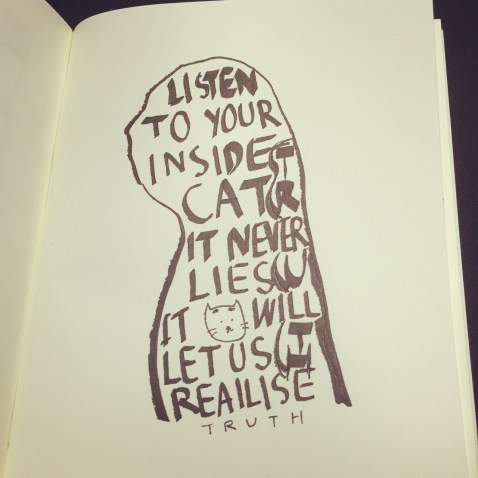 LISTEN
TO YOUR
INSIDE
CAT
IT NEVER
LIES
IT WILL
LET US
REAILISE
TRUTH